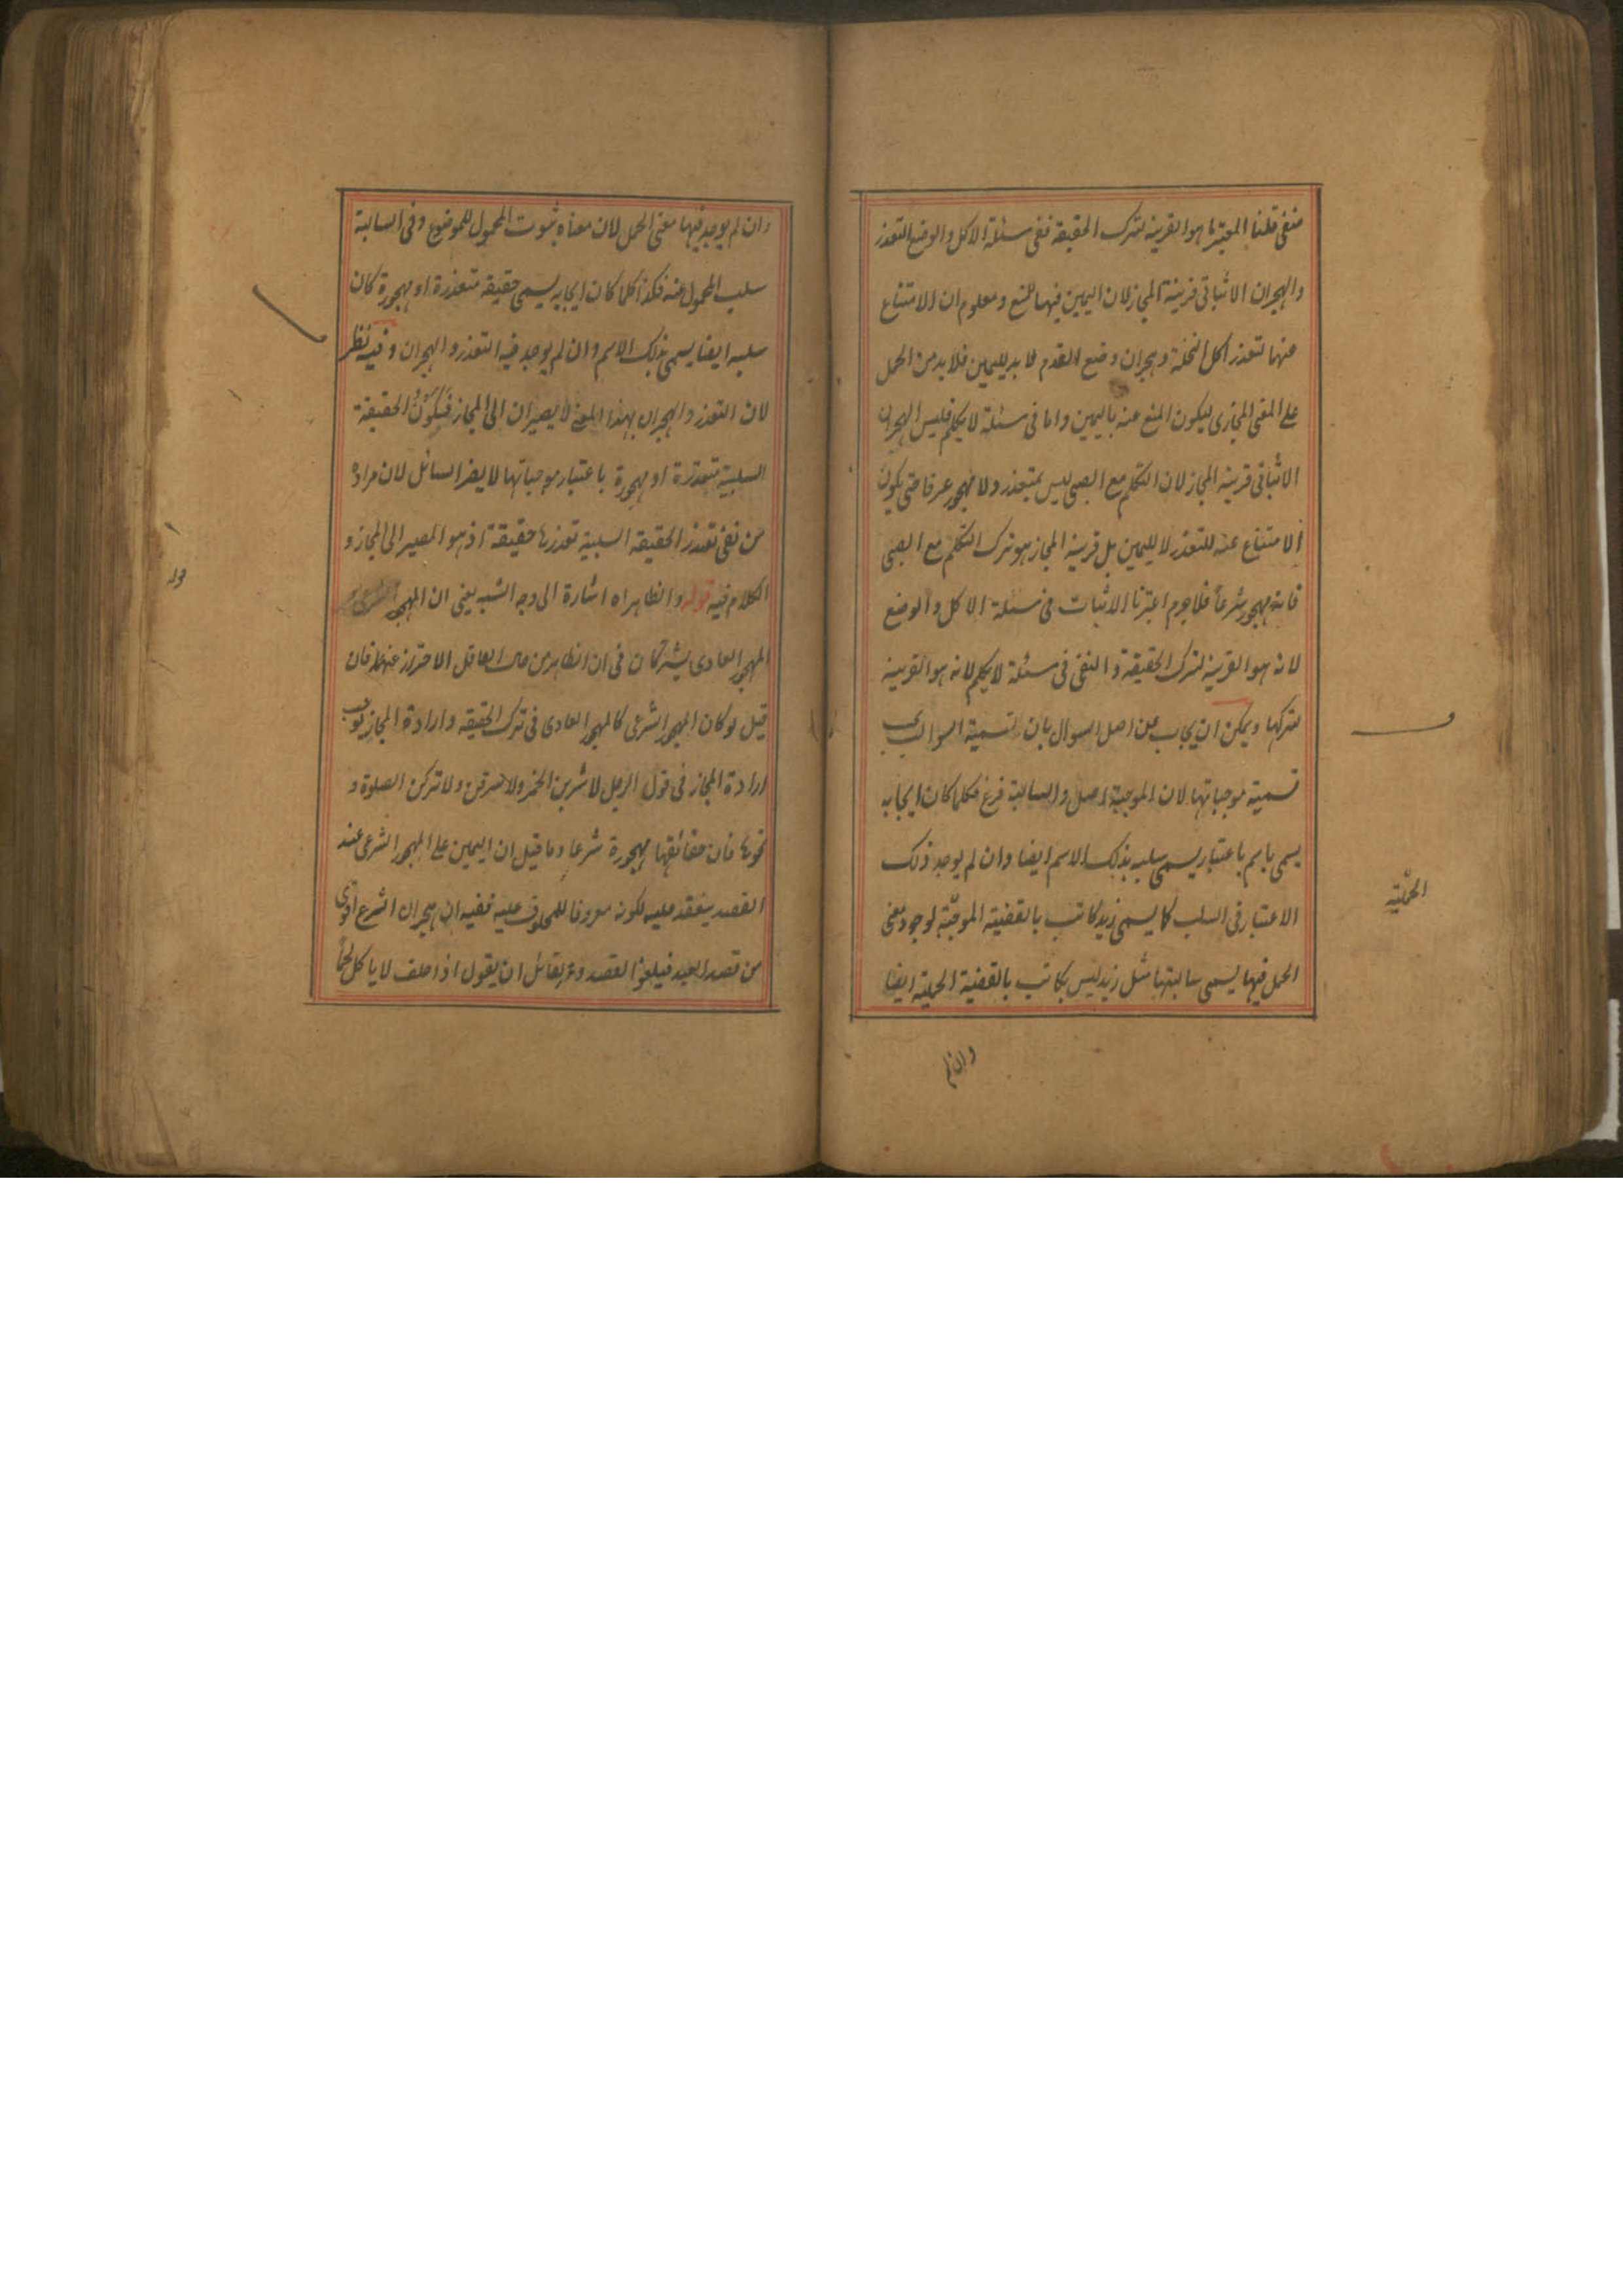 منفى قلنا المعتبر ما هو القرينة لترك الحقيقة ففى مسئلة الاكل والوضع التعذر
والهجران الاثباتى قرينة المجاز لان اليمين فيهما للمنع ومعلوم ان الامتناع
عنهما لتعذر اكل النخلة وهجران وضع القدم لا بد لليمين فلا بد من الحمل
على المعنى المجازى ليكون المنع عنه باليمين واما فى مسئلة لا يكلم فليس الهجران
الاثباتى قرينة المجاز لان التكلم مع الصبى ليس بمتعذر ولا مهجور عرفا حتى يكون
الامتناع عنه للتعذر لا لليمين بل قرينة المجاز هو ترك التكلم مع الصبى
فانه مهجور شرعا فلا جرم اعتبرنا الاثبات فى مسئلة الاكل والوضع
لانه هو القرينة لترك الحقيقة والنفى فى مسئلة لا يكلم لانه هو القرينة
لتركها ويمكن ان يجاب عن اصل السوال بان تسمية السوالب بحسب
تسمية موجباتها لان الموجبة اصل والسالبة فرع فكلما كان ايجابه
يسمى باسم باعتبار يسمى سلبه بذلك الاسم ايضا وان لم يوجد ذلك
الاعتبار فى السلب كما يسمى زيد كاتب بالقضية الموجبة لوجود معنى
الحملية
الحمل فيها يسمى سالبتها مثل زيد ليس بكاتب بالقضية الحملية ايضا
وان لم
وان لم يوجد فيها معنى الحمل لان معناه ثبوت المحمول للموضوع وفى السالبة
سلب المحمول عنه فكذا كلما كان ايجابه يسمى حقيقة متعذرة او مهجورة كان
سلبه ايضا يسمى بذلك الاسم وان لم يوجد فيه التعذر والهجران وفيه نظر
لان التعذر والهجران بهذا المعنى لا يصيران الى المجاز فيكون الحقيقة
السلبية متعذرة او مهجورة باعتبار موجباتها لا يضر السائل لان مراده
من نفى تعذر الحقيقة السلبية تعذرها حقيقة اذ هو المصير الى المجاز و
الكلام فيه قوله والظاهر اه اشارة الى وجه الشبه يعنى ان المهجور الشرعى
المهجور العادى يشتركان فى ان الظاهر من حال العاقل الاحتراز عنهما فان
قيل لو كان المهجور الشرعى كالمهجور العادى فى ترك الحقيقة وارادة المجاز لوجب
ارادة المجاز فى قول الرجل لاشربن الخمر ولاسرقن ولاتركن الصلوة و
نحوها فان حقائقها مهجورة شرعا وما قيل ان اليمين على المهجور الشرعى عند
القصد ينعقد عليه لكونه معروفا للمحلوف عليه ففيه ان هجران الشرع اقوى
من قصد العبد فيلغو القصد ولقائل ان يقول اذا حلف لا ياكل لحما